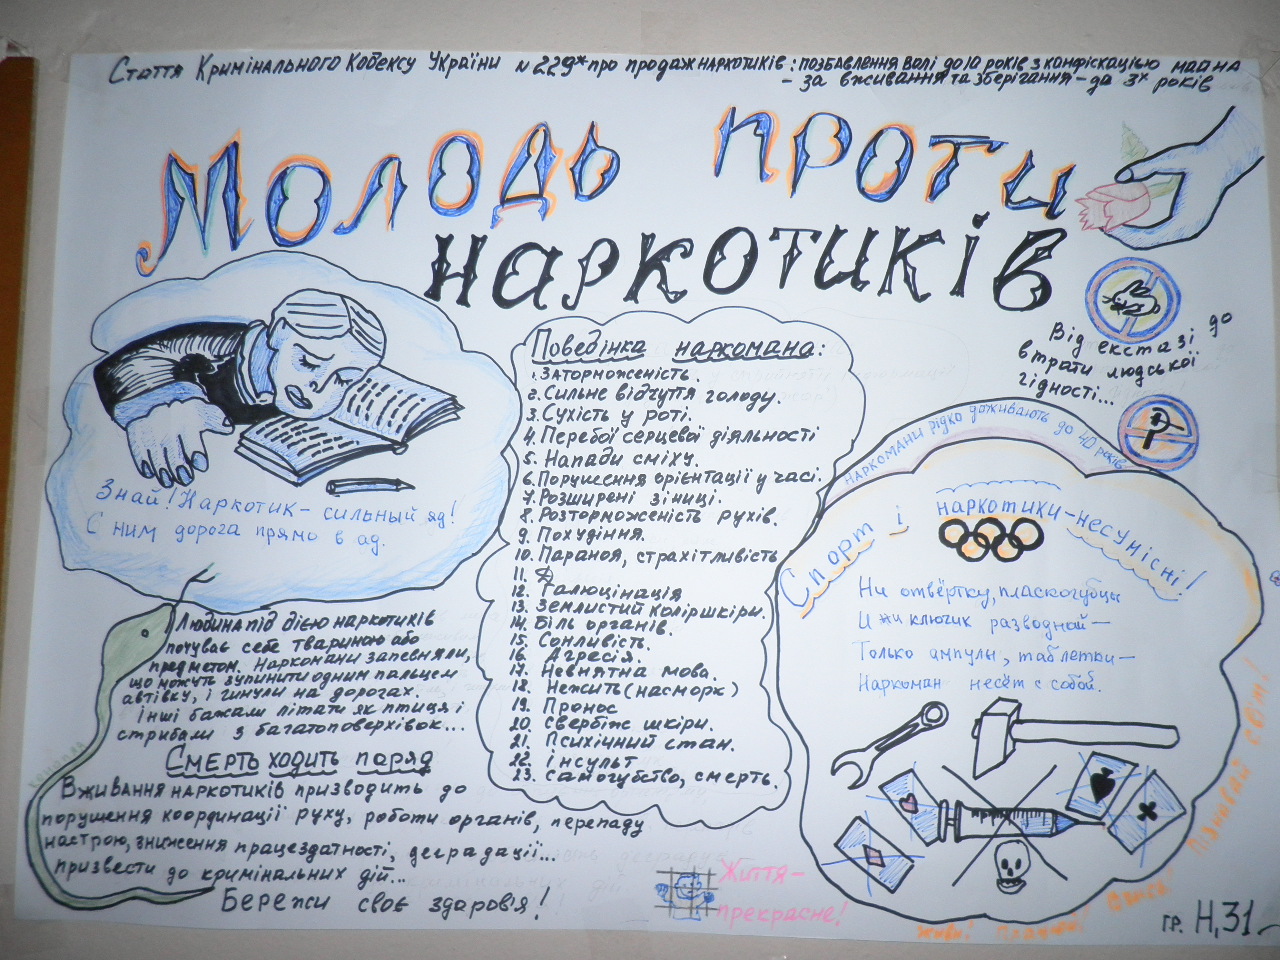 Стаття Кримінального Кодексу України № 229* про продаж наркотиків: позбавлення волі до 10 років з конфіскацією майна
- за вживання та зберігання - до 3х років
Молодь проти
наркотиків
Від екстазі до
втрати людської
гідності...
Знай! Наркотик - сильный яд!
С ним дорога прямо в ад.
Поведінка наркомана:
1. Заторможеність.
2. Сильне відчуття голоду.
3. Сухість у роті.
4. Перебої серцевої діяльності
5. Напади сміху.
6. Порушення орієнтації у часі.
7. Розширені зіниці.
8. Розторможеність рухів.
9. Похудіння.
10. Параноя, страхітливість
11.
12. Галюцінація
13. Землистий колір шкіри.
14. Біль органів.
15. Сонливість.
16. Агресія.
17. Невнятна мова.
18. Нежить (насморк)
19. Пронос
20. Свербіж шкіри.
21. Психічний стан.
22. інсульт
23. самогубство, смерть.
наркомани рідко доживають до 40 років
Спорт і наркотики - несумісні!
Ни отвёртку, пласкогубцы
И ни ключик разводной -
Только ампулы, таблетки -
Наркоман несёт с собой.
Людина під дією наркотиків
почуває себе твариною або
предметом. Наркомани запевняли,
що можуть зупинити одним пальцем
автівку, і гинули на дорогах.
Інші бажали літати як птиця і
стрибали з багатоповерхівок...
Смерть ходить поряд
Вживання наркотиків призводить до
порушення координації руху, роботи органів, перепаду
настрою, зниження працездатності, деградації...
призвести до кримінальних дій...
Бережи своє здоров'я!
Життя -
прекрасне!
живи!
пізнавай світ!
гр. Н, 31